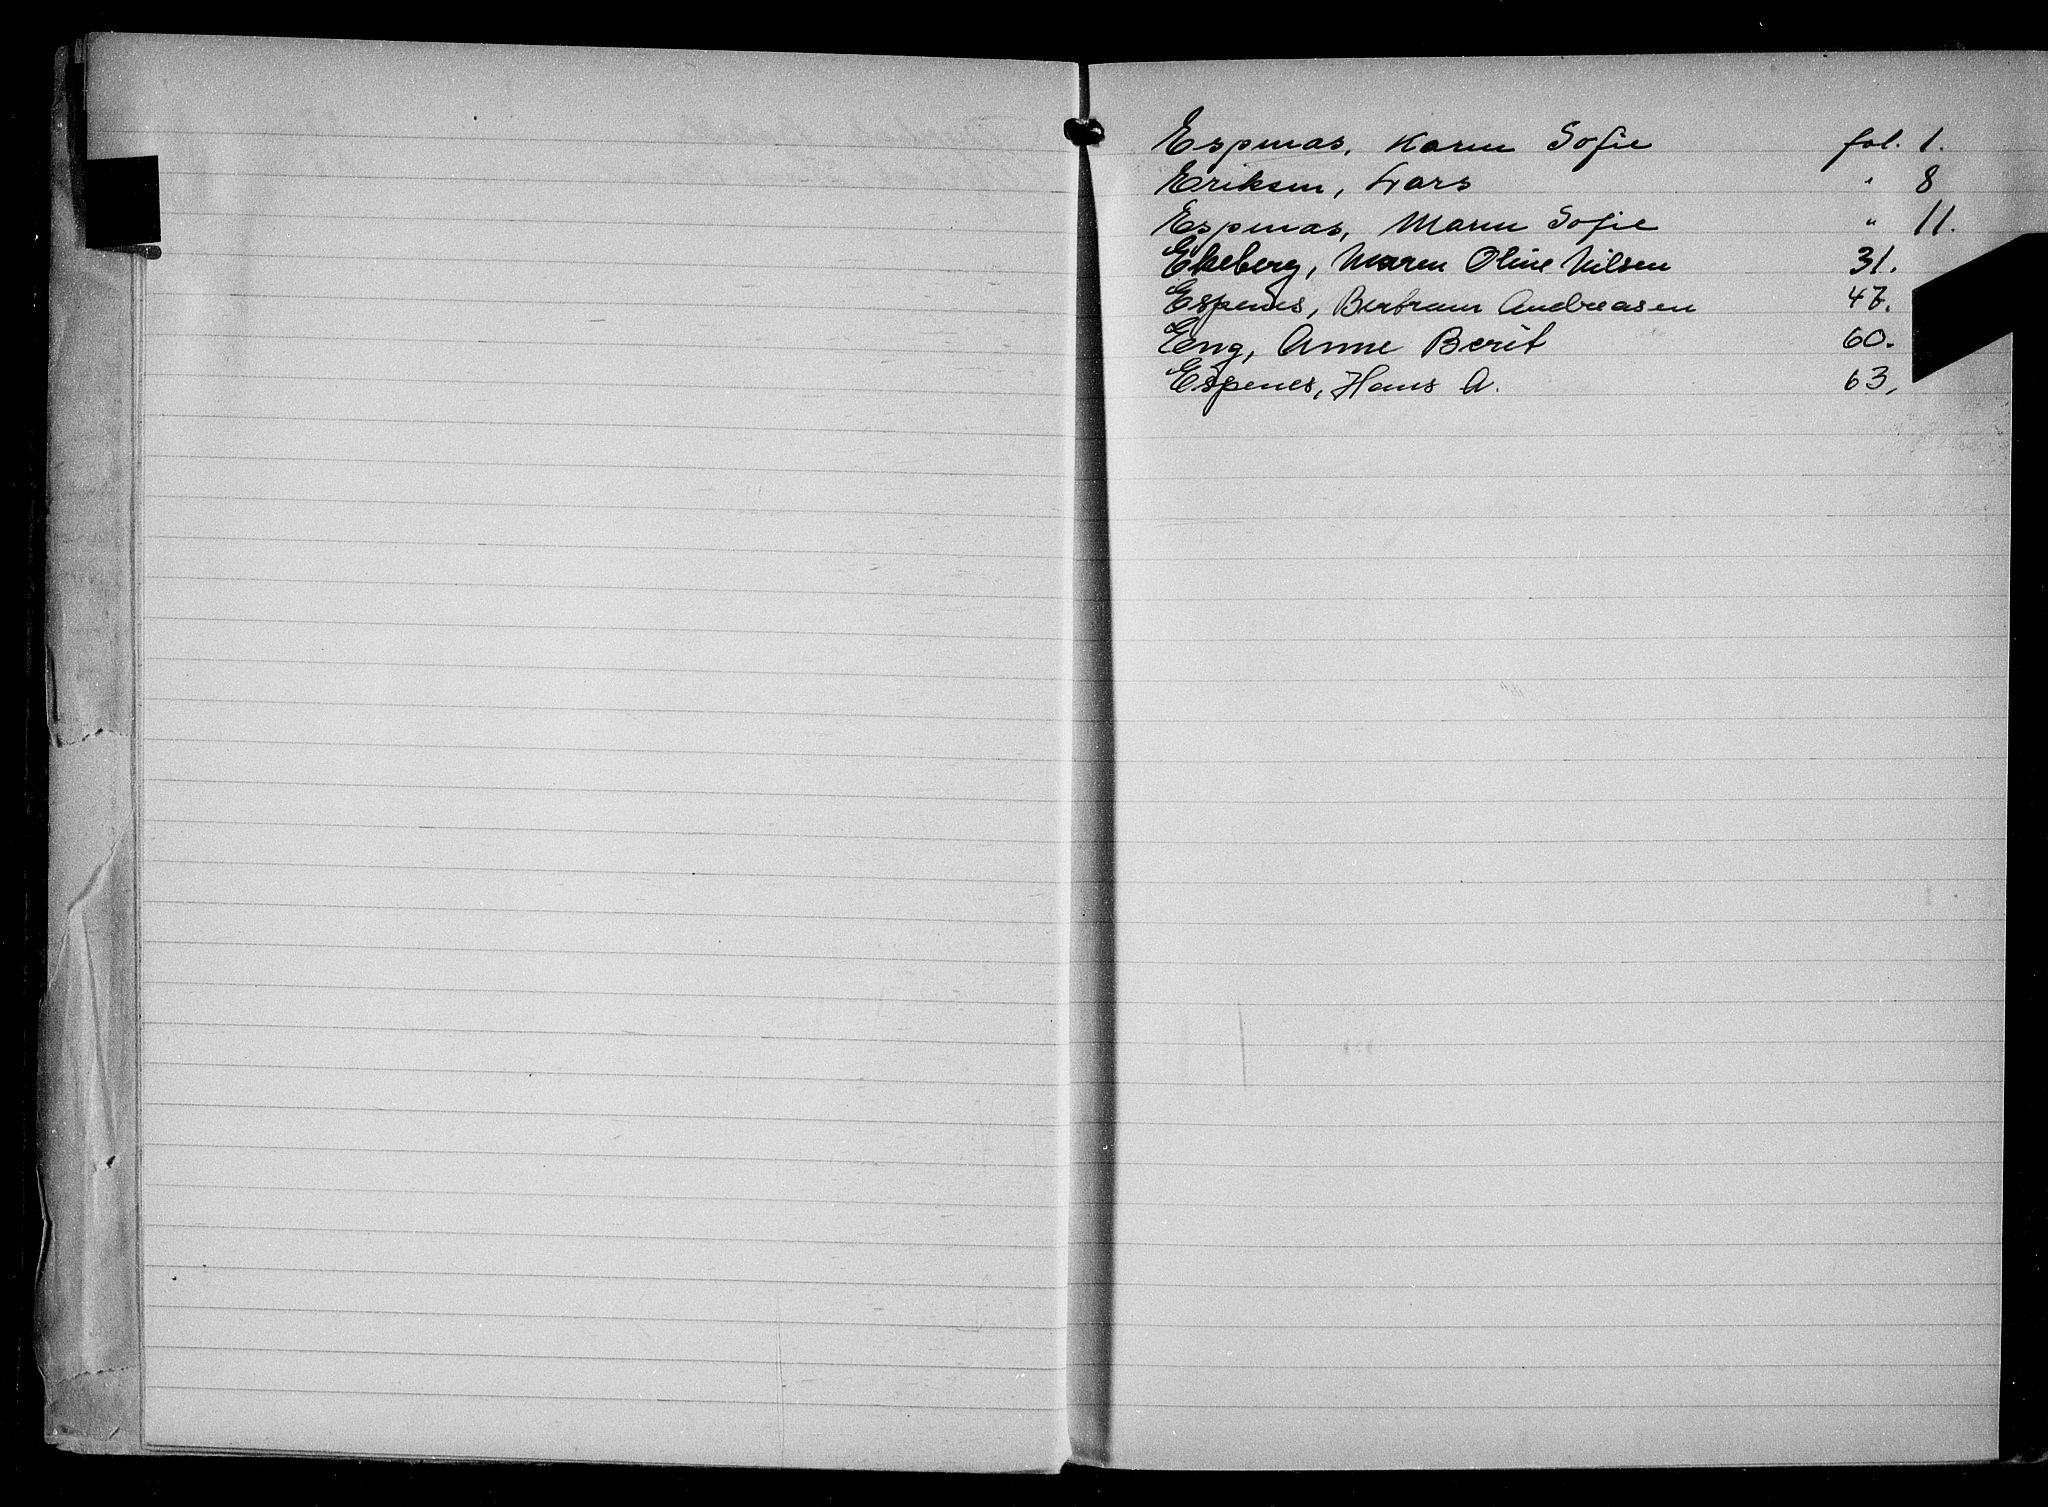 Espenæs, Karen Sofie fol. 1.
Eriksen, Lars " 8
Espenæs, Maren Sofie " 11.
Ekeberg, Maren Oline Nilsen 31.
Espenes, Bertram Andreasen 47.
Eng, Anne Berit 60.
Espenes, Hans A. 63.